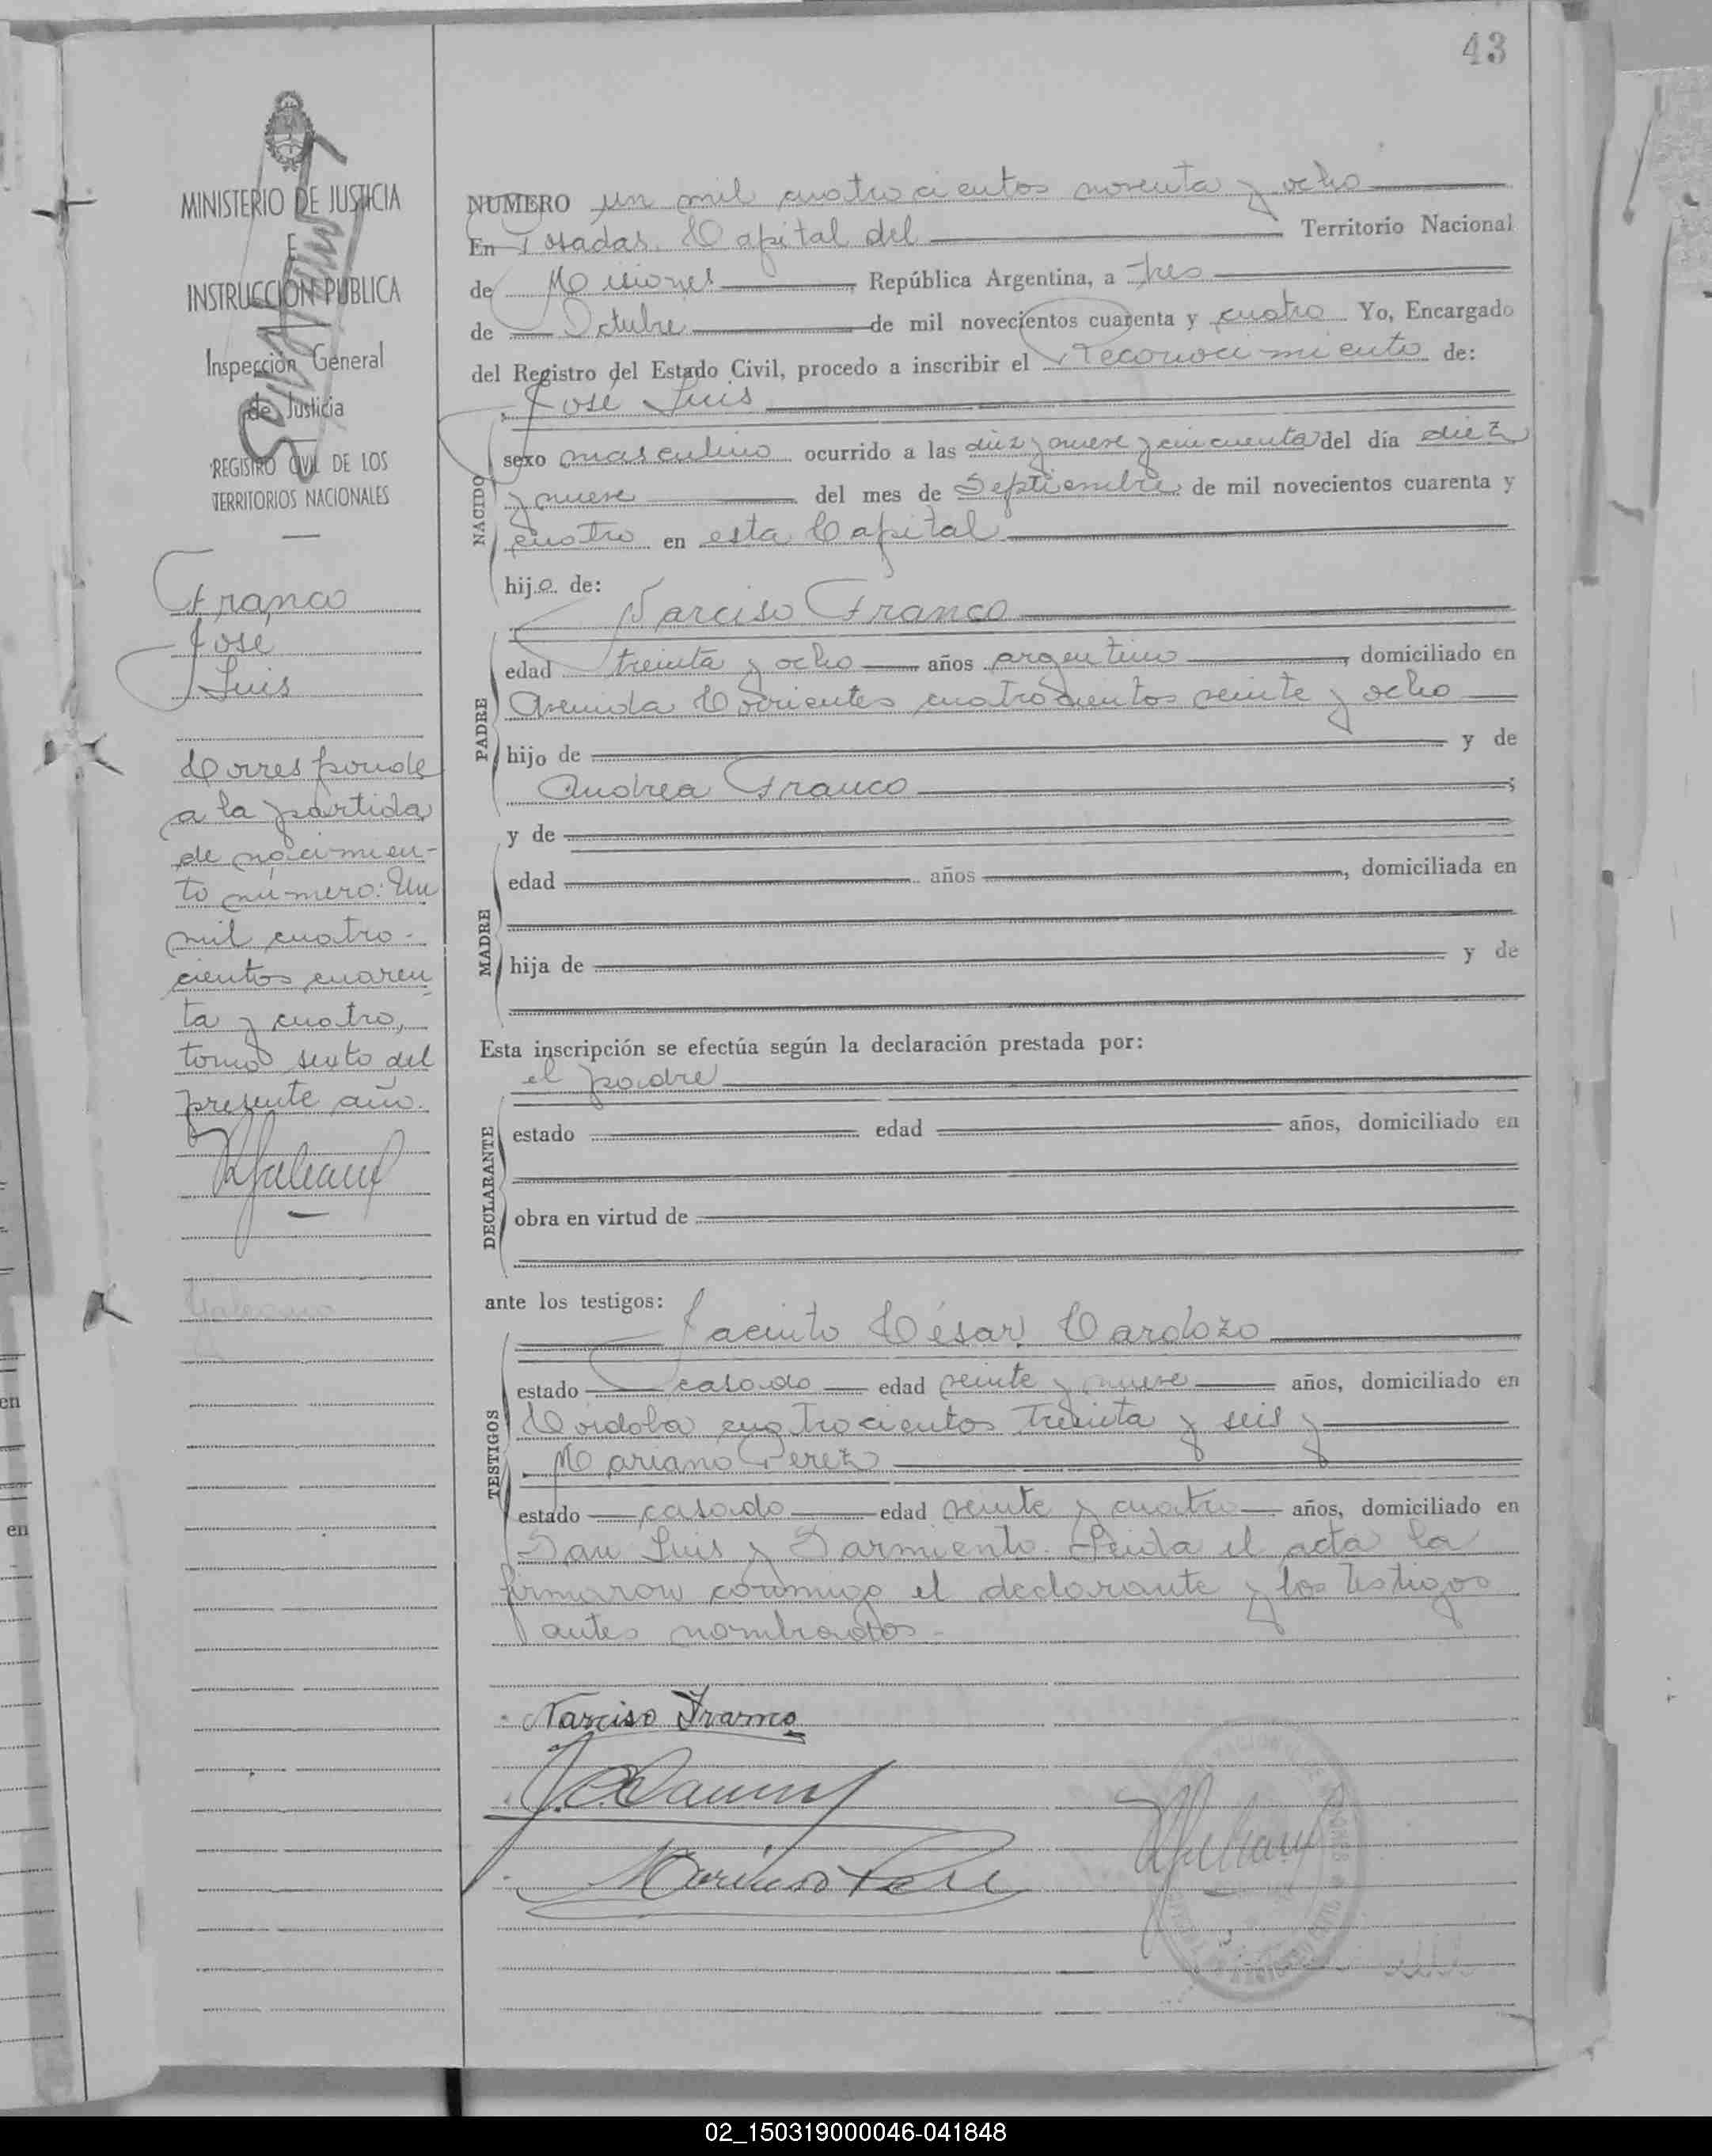 43
MINISTERIO DE JUSTICIA
E
INSTRUCCIÓN PUBLICA
Inspección General
de Justicia
REGISTRO CIVIL DE LOS
TERRITORIOS NACIONALES
Franco
José
Luis
Corresponde
a la partida
de nacimien-
to número: Un
mil cuatro-
cientos cuaren
ta y cuatro,
tomo sexto del
presente año.
NUMERO un mil cuatrocientos noventa y ocho
En Posadas, Capital del Territorio Nacional
de Misiones, República Argentina, a tres
de Octubre de mil novecientos cuarenta y cuatro Yo, Encargado
del Registro del Estado Civil, procedo a inscribir el Reconocimiento de:
José Luis
NACIDO
sexo masculino ocurrido a las diez y nueve y cincuenta del día diez
y nueve del mes de Septiembre de mil novecientos cuarenta y
cuatro en esta Capital
hijo de:
Narciso Franco
PADRE
edad treinta y ocho años argentino, domiciliado en
Avenida Corrientes cuatrocientos veinte y ocho
hijo de y de
Andrea Franco;
y de
MADRE
edad años, domiciliada en
hija de y de
Esta inscripción se efectúa según la declaración prestada por:
el padre
DECLARANTE
estado edad años, domiciliado en
obra en virtud de
ante los testigos:
Jacinto César Cardozo
TESTIGOS
estado casado edad veinte y nueve años, domiciliado en
Córdoba cuatrocientos treinta y seis y
Mariano Perez
estado casado edad veinte y cuatro años, domiciliado en
San Luis y Sarmiento. Leida el acta la
firmaron conmigo el declarante y los testigos
antes nombrados.-
Narciso Franco
02_150319000046-041848